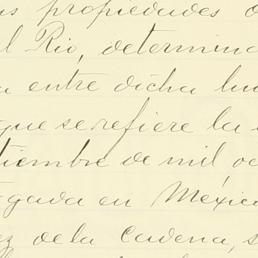 as propiedades
l Rio, determina
a entre dicha
que se refiere la
tiembre de mil oc
gada en México
ez de la Cadena, s